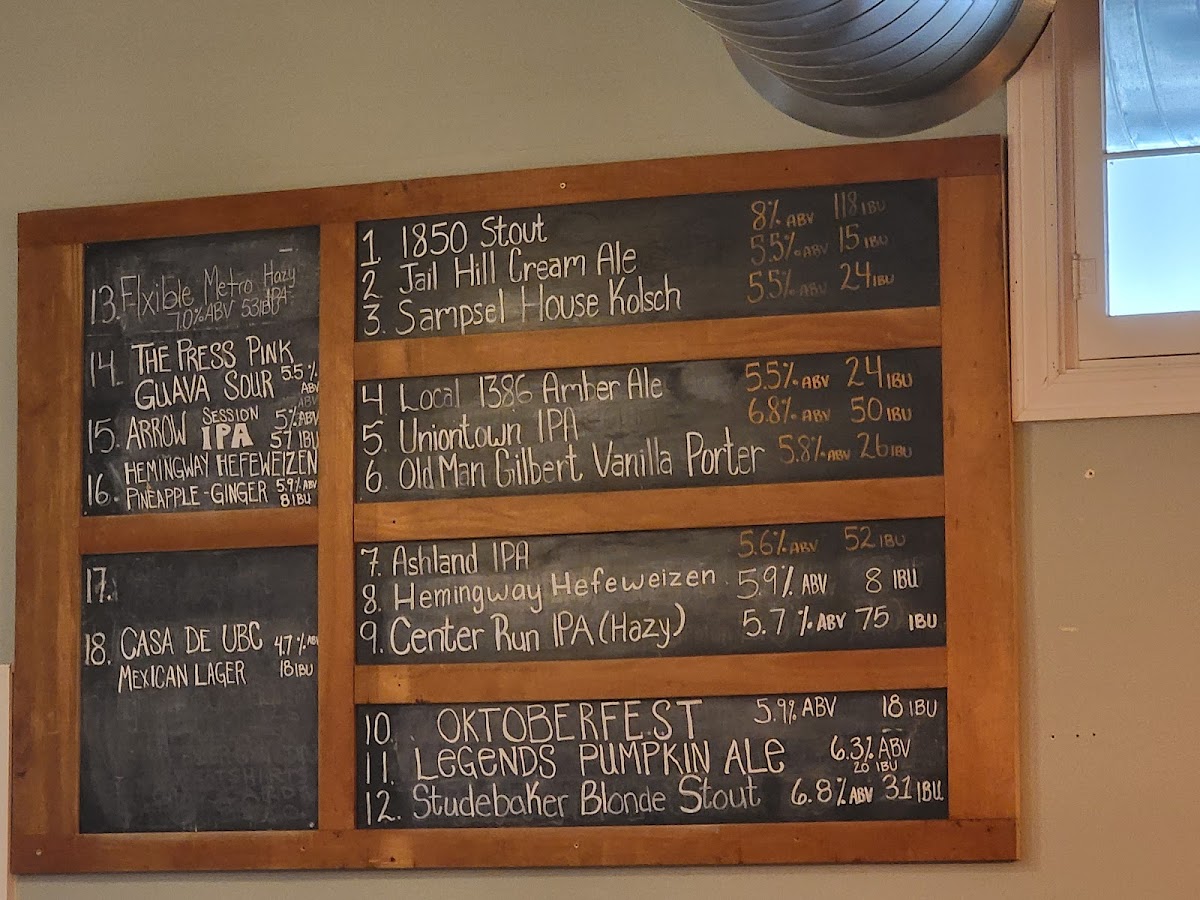 13. Flxible Metro Hazy
7.0% ABV 53 IBU IPA
14. THE PRESS PINK
GUAVA SOUR 5.5%
ABV
15. ARROW SESSION 5% ABV
IPA 57 IBU
HEMINGWAY HEFEWEIZEN
16. PINEAPPLE-GINGER 5.9% ABV
8 IBU
17.
18. CASA DE UBC 4.7% ABV
MEXICAN LAGER 18 IBU
1 1850 Stout 8% ABV 118 IBU
2. Jail Hill Cream Ale 5.5% ABV 15 IBU
3. Sampsel House Kolsch 5.5% ABV 24 IBU
4 Local 1386 Amber Ale 5.5% ABV 24 IBU
5. Uniontown IPA 6.8% ABV 50 IBU
6. Old Man Gilbert Vanilla Porter 5.8% ABV 26 IBU
7. Ashland IPA 5.6% ABV 52 IBU
8. Hemingway Hefeweizen 5.9% ABV 8 IBU
9. Center Run IPA (Hazy) 5.7% ABV 75 IBU
10. OKTOBERFEST 5.9% ABV 18 IBU
11. LEGENDS PUMPKIN ALE 6.3% ABV
20 IBU
12. Studebaker Blonde Stout 6.8% ABV 31 IBU